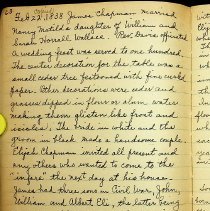 63
Feb 22, 1838 James Chapman married
Nancy Matilda daughter of William and
Sarah Norsell Wallace. Rev. Davis officiated
A wedding feast was served to one hundred.
The center decoration for the table was a
small cedar tree festooned with fine cut
paper. Other decorations were cedar and
grasses dipped in flour or alum water
making them glisten like frost and
icicles. The bride in white and the
groom in black made a handsome couple.
Elijah Chapman invited all present and
any others who wanted to come to the
"infare" the next day at his house.
James had three sons in Civil War, John,
William and Albert Eli, the latter being